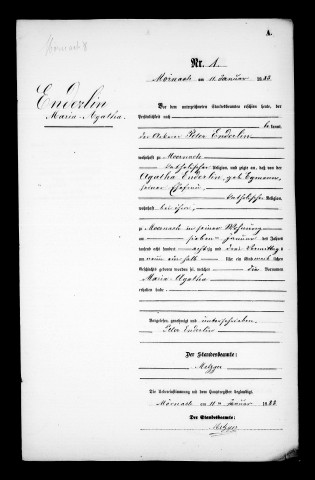 A.
Mörnach II
Nr. 1.
Mörnach am 11 Januar 1883
Enderlin
Maria Agatha.
Vor dem unterzeichneten Standesbeamten erschien heute, der
Persönlichkeit nach
be kannt,
der Ackerer Peter Enderlin
wohnhaft zu Moernach
katholischer Religion, und zeigte an, daß von der
Agatha Enderlin, geb.
seiner Ehefrau
katholischer Religion,
wohnhaft bei ihm,
zu Moernach in seiner Wohnung
am sieben Januar des Jahres
tausend acht hundert achtzig und drei Vormittags
um neun ein halb Uhr ein Kind weiblichen
Geschlechts geboren worden sei, welches die Vornamen
Maria Agatha
erhalten habe.
Vorgelesen, genehmigt und unterschrieben.
Peter Enderlin
Der Standesbeamte:
Metzger
Die Uebereinstimmung mit dem Hauptregister beglaubigt.
Mörnach am 11 Januar 1883
Der Standesbeamte:
Metzger